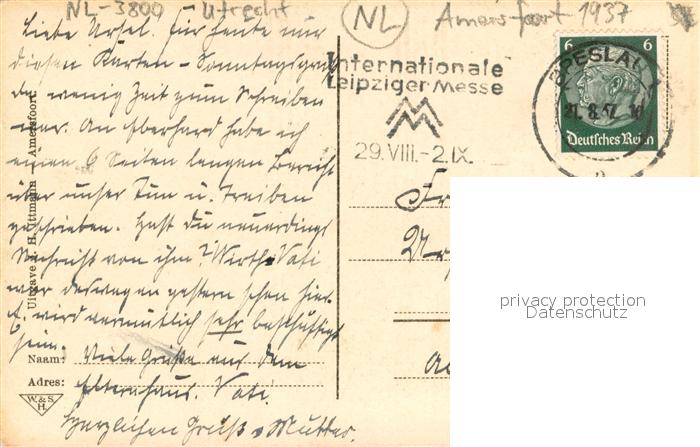 NL-3800 Utrecht
NL
Amersfoort 1937
Liebe Ursel. Für heute nur
diesen Karten-Sonntagsgruß
da wenig Zeit zum Schreiben
war. An Eberhard habe ich
einen 6 Seiten langen Bericht
über unser Tun u. Treiben
geschrieben. Hast Du neuerdings
Nachricht von ihm? Vati
war deswegen gestern schon hier
wird vermutlich sehr beschäftigt
sein.
Viele Grüße aus dem
Elternhaus. Vati.
Herzlichen Gruß Mutter.
Naam:
Adres:
W.&S.
H.
Uitgave J. H. Uttmann - Amersfoort
Internationale
Leipziger Messe
29.VIII.-2.IX.
6 6
Deutsches Reich
BRESLAU
21.8.37
privacy protection
Datenschutz